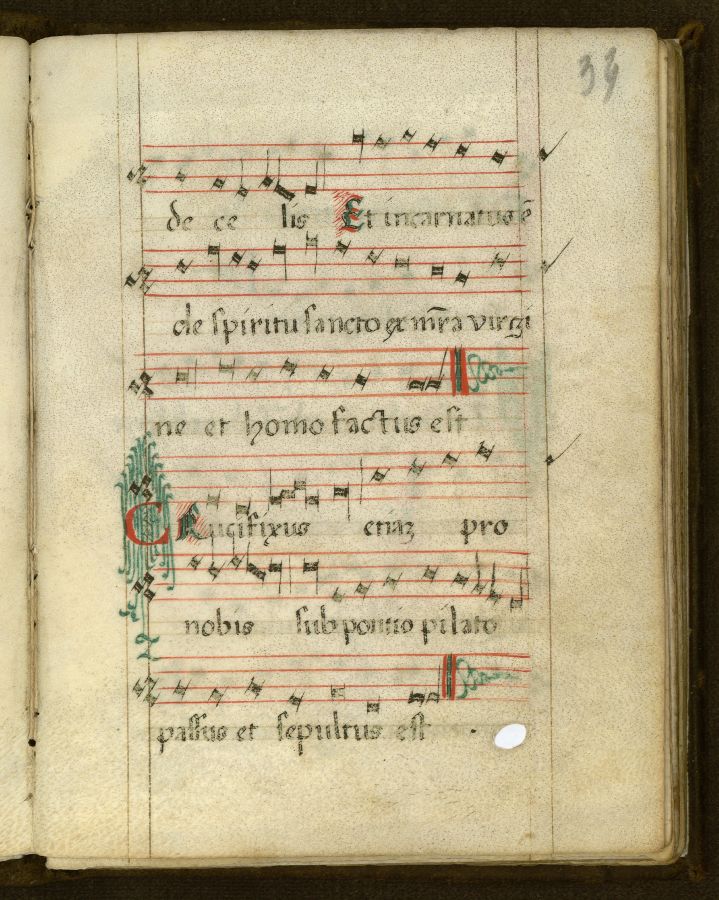 33
de ce lis Et incarnatus ē
de spiritu sancto ex mr̄a virgi
ne et homo factus est
CRucifixus etiaz pro
nobis sub pontio pilato
passus et sepultus est